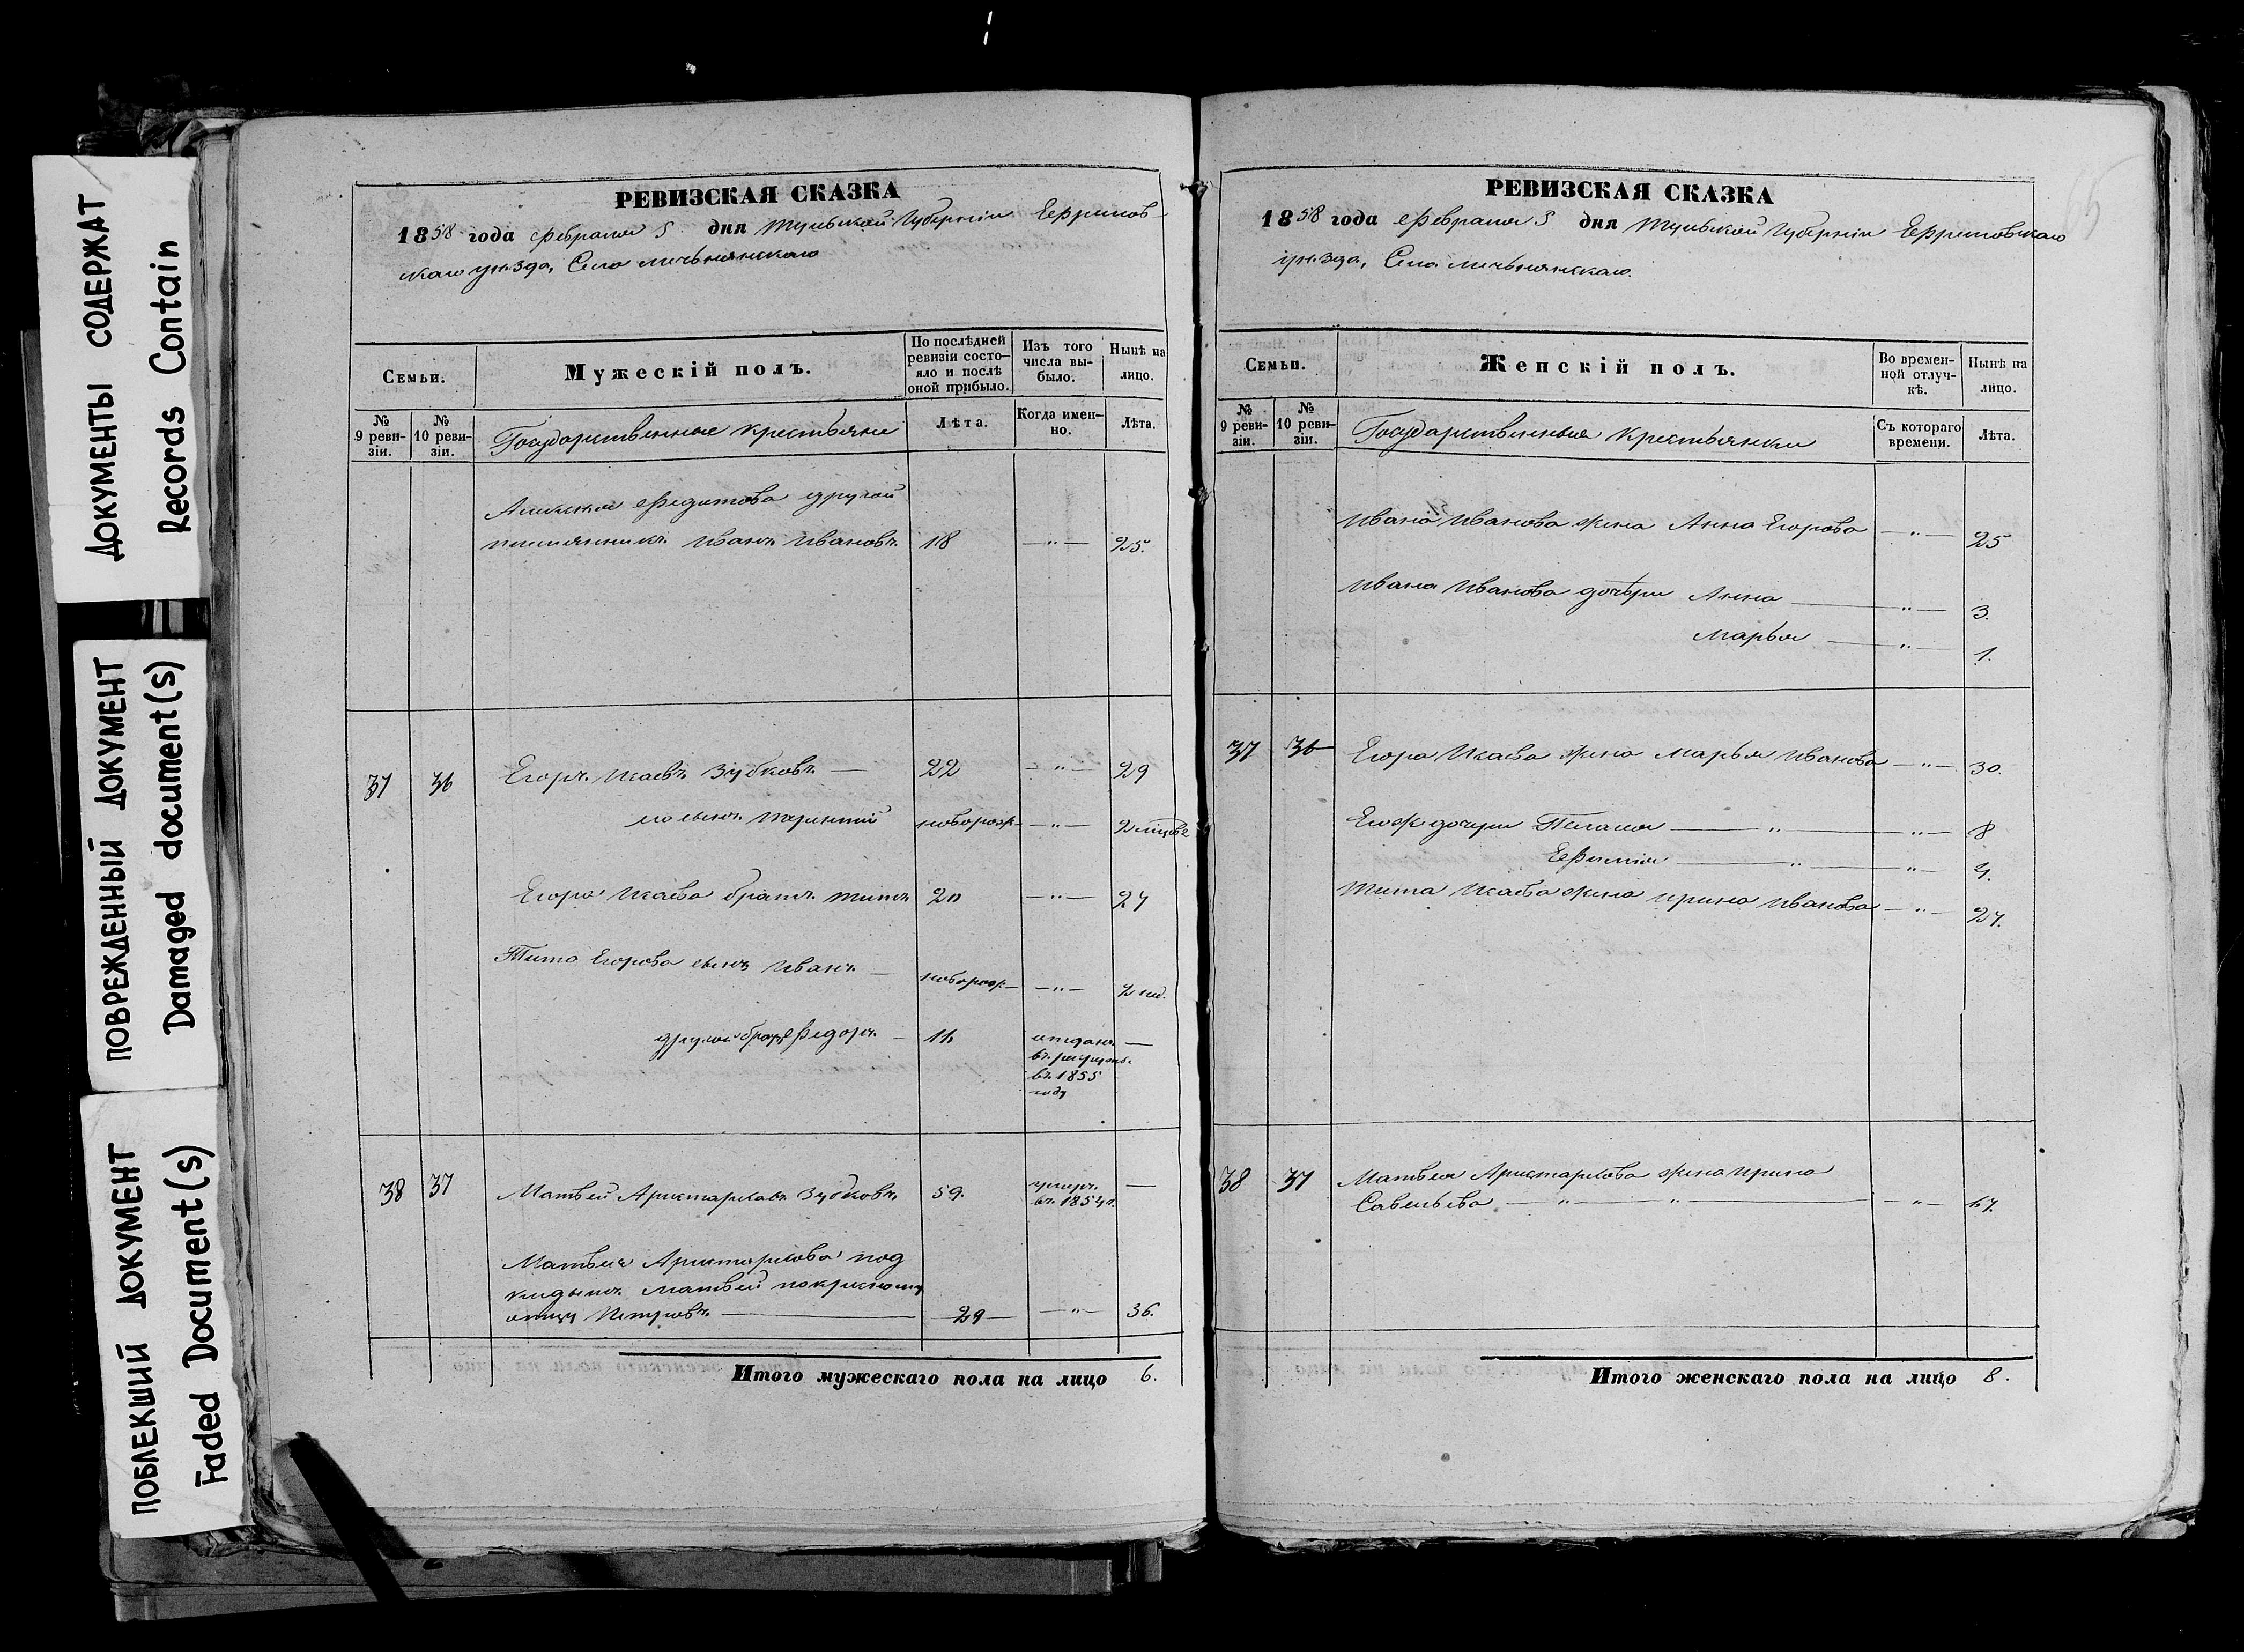 ДОКУМЕНТЫ СОДЕРЖАТ
Records Contain
ПОВРЕЖДЕННЫЙ ДОКУМЕНТ
Damaged document(s)
ПОБЛЕКШИЙ ДОКУМЕНТ
Faded Document(s)
РЕВИЗСКАЯ СКАЗКА
1858 года февраля 5 дня Тульской Губернии Ефремов-
скаго уѣзда, Села
Семьи.
Мужескій полъ.
По послѣдней ревизіи состо-яло и послѣ оной прибыло.
Изъ того числа вы-было.
Нынѣ на лицо.
№ 9 реви-зіи.
№ 10 реви-зіи.
Государственные крестьяне
Лѣта.
Когда имен-но.
Лѣта.
другой
племянникъ Иванъ Ивановъ 18 —"— 25.
37 36 Егоръ Исаевъ Зубковъ — 22 —"— 29
его сынъ новорож. —"—
Егора Исаева братъ Титъ 20 —"— 27
Тита Егорова сынъ Иванъ — новорож. —"— 2 нед.
другой братъ Федоръ — отданъ —
въ рекруты
въ 1855
году
38 37 Матвей Аристарховъ Зубковъ 59. умеръ —
въ 1854 г.
Матвея Аристархова под
кидышъ Матвей по крестному
отцу Петровъ — 29 —"— 36.
Итого мужескаго пола на лицо 6.
РЕВИЗСКАЯ СКАЗКА
65
1858 года февраля 5 дня Тульской Губернии Ефремовскаго
уѣзда, Села
Семьи.
Женскій полъ.
Во времен-ной отлуч-кѣ.
Нынѣ на лицо.
№ 9 реви-зіи.
№ 10 реви-зіи.
Государственныя крестьянки
Съ котораго времени.
Лѣта.
Ивана Иванова жена Анна Егорова —"— 25
Ивана Иванова дочери Анна —"— 3.
Марья —"— 1.
37 36 Егора Исаева жена Марья Иванова —"— 30.
Егож дочери Пелагея —"— "— 8
Ефимия —"— "— 4.
Тита Исаева жена Ирина Иванова —"— 27.
38 37 Матвея Аристархова жена Ирина
Савельева —"—"— "— 67.
Итого женскаго пола на лицо 8.